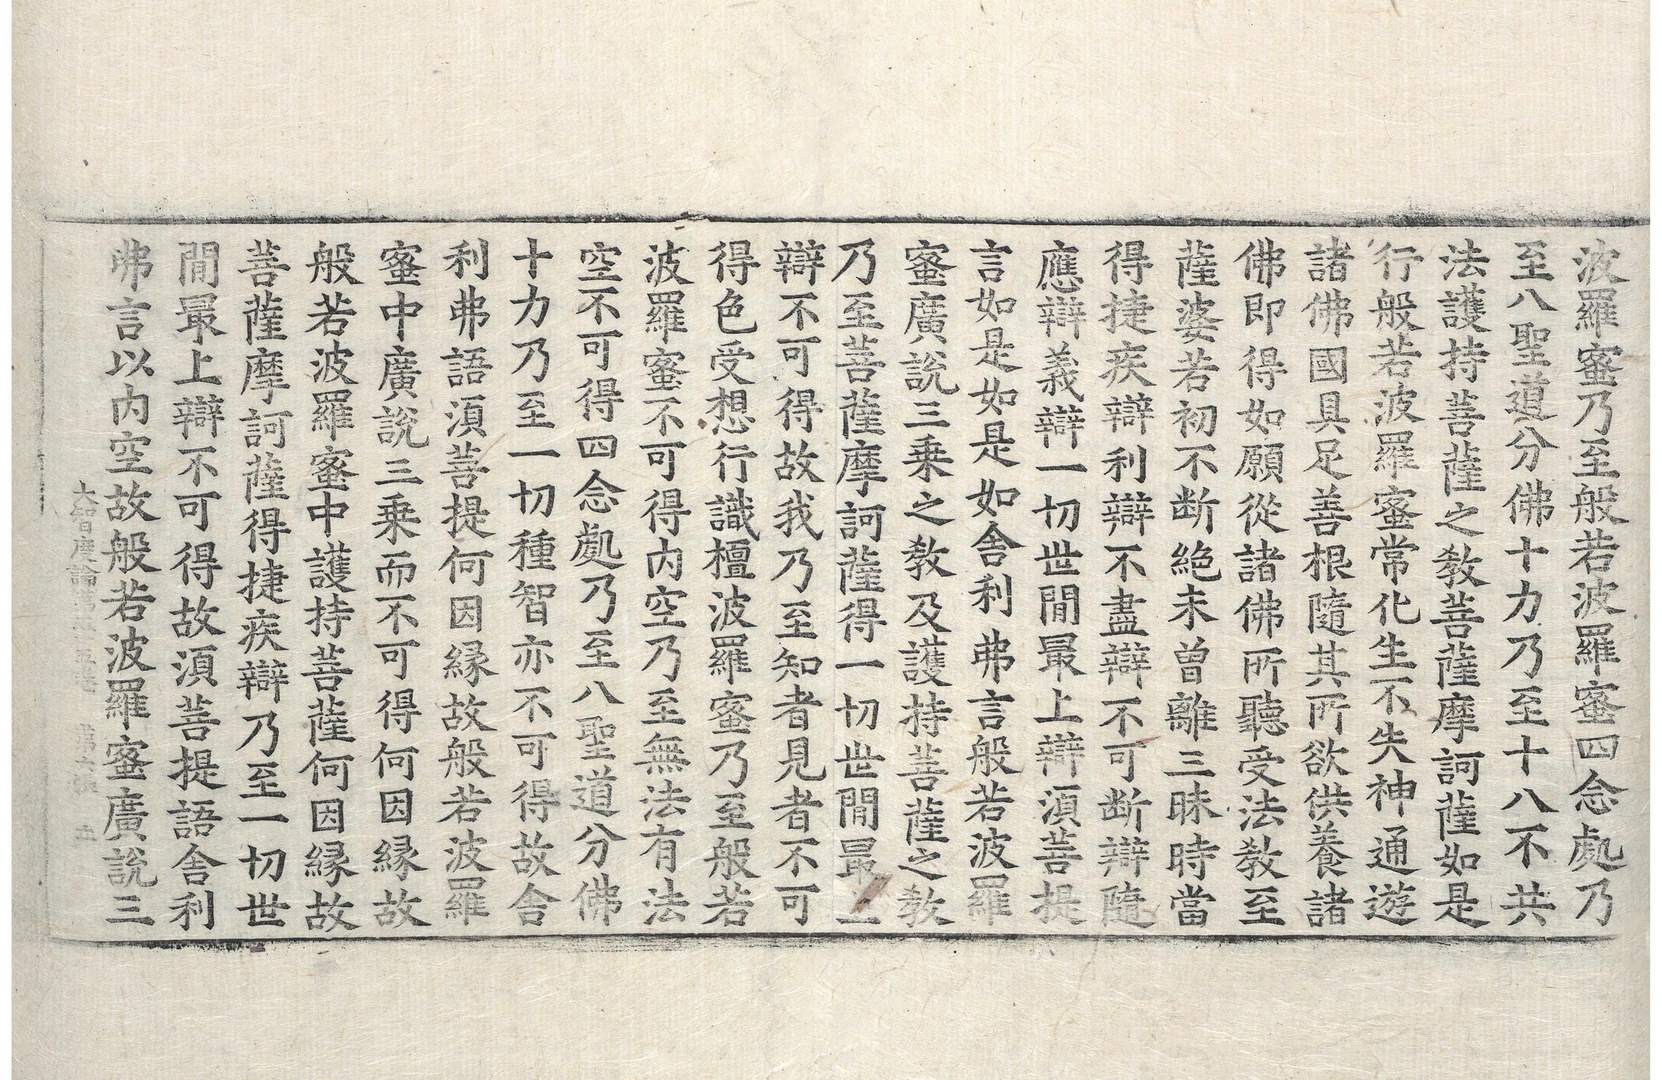 波羅蜜乃至般若波羅蜜四念處乃
至八聖道分佛十力乃至十八不共
法護持菩薩之教菩薩摩訶薩如是
行般若波羅蜜常化生不失神通遊
諸佛國具足善根隨其所欲供養諸
佛即得如願從諸佛所聽受法教至
薩婆若初不断絶未曾離三昧時當
得捷疾辯利辯不盡辯不可断辯隨
應辯義辯一切世閒最上辯湏菩提
言如是如是如舍利弗言般若波羅
蜜廣說三乗之教及護持菩薩之教
乃至菩薩摩訶薩得一切世閒最上
辯不可得故我乃至知者見者不可
得色受想行識檀波羅蜜乃至般若
波羅蜜不可得内空乃至無法有法
空不可得四念處乃至八聖道分佛
十力乃至一切種智亦不可得故舍
利弗語湏菩提何因縁故般若波羅
蜜中廣說三乗而不可得何因縁故
般若波羅蜜中護持菩薩何因縁故
菩薩摩訶薩得捷疾辯乃至一切世
閒最上辯不可得故湏菩提語舍利
弗言以内空故般若波羅蜜廣說三
大智度論 第六張